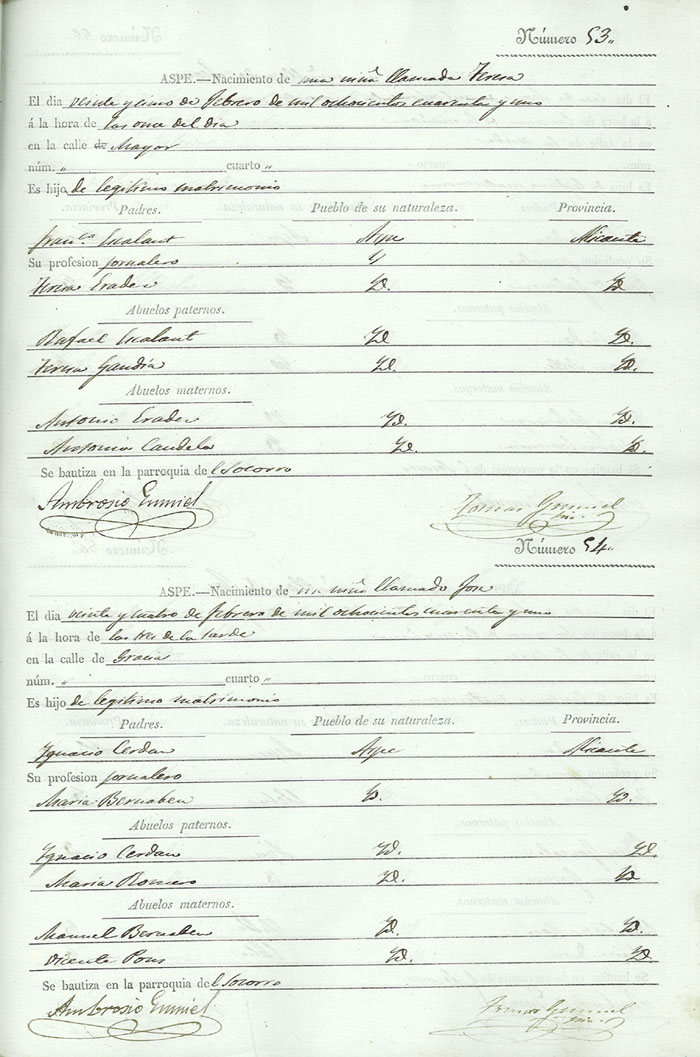 Número 53.
ASPE.—Nacimiento de una niñ llamada Teresa
El dia veinte y cinco de febrero de mil ochocientos cuarenta y uno
á la hora de las once del dia
en la calle de Mayor
núm. " cuarto "
Es hijo de legitimo matrimonio
Padres. Pueblo de su naturaleza. Provincia.
Fran.co Escalant Aspe Alicante
Su profesion jornalero
Teresa Erades Yd. Yd
Abuelos paternos.
Rafael Escalant Yd Yd.
Teresa Gandia Yd. Yd.
Abuelos maternos.
Antonio Erades Yd. Yd.
Antonia Candela Yd. Yd.
Se bautiza en la parroquia del Socorro
Ambrosio Gumiel Tomas Gumiel
Número 54.
ASPE.—Nacimiento de un niñ llamado Jose
El dia veinte y cuatro de febrero de mil ochocientos cuarenta y uno
á la hora de las tres de la tarde
en la calle de Gracia
núm. " cuarto "
Es hijo de legitimo matrimonio
Padres. Pueblo de su naturaleza. Provincia.
Ygnacio Cerdan Aspe Alicante
Su profesion jornalero
Maria Bernabeu Yd. Yd.
Abuelos paternos.
Ygnacio Cerdan Yd. Yd.
Maria Romero Yd. Yd
Abuelos maternos.
Manuel Bernabeu Yd. Yd.
Vicenta Pons Yd. Yd
Se bautiza en la parroquia del Socorro
Ambrosio Gumiel Tomas Gumiel